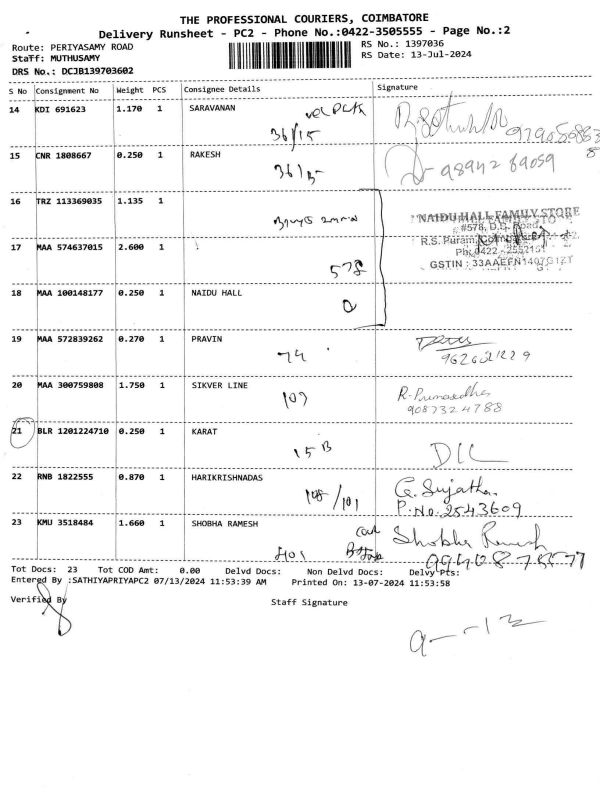 THE PROFESSIONAL COURIERS, COIMBATORE
Delivery Runsheet - PC2 - Phone No.:0422-3505555 - Page No.:2
Route: PERIYASAMY ROAD
RS No.: 1397036
Staff: MUTHUSAMY
RS Date: 13-Jul-2024
DRS No.: DCJB139703602
S No Consignment No Weight PCS Consignee Details Signature
14 KDI 691623 1.170 1 SARAVANAN
36/15
15 CNR 1808667 0.250 1 RAKESH
98942 69059
36/15
16 TRZ 113369035 1.135 1
NAIDU HALL FAMILY STORE
#578, D.B. Road,
R.S. Puram,
17 MAA 574637015 2.600 1
GSTIN : 33AAEFN1407G1ZY
578
18 MAA 100148177 0.250 1 NAIDU HALL
19 MAA 572839262 0.270 1 PRAVIN
74
20 MAA 300759808 1.750 1 SIKVER LINE
107
9087324788
21 BLR 1201224710 0.250 1 KARAT
15 B
DIC
22 RNB 1822555 0.870 1 HARIKRISHNADAS
G. Sujatha.
P.No. 2543609
23 KMU 3518484 1.660 1 SHOBHA RAMESH
Shobha Ramesh
Tot Docs: 23 Tot COD Amt: 0.00 Delvd Docs: Non Delvd Docs: Delvy Pts:
Entered By :SATHIYAPRIYAPC2 07/13/2024 11:53:39 AM Printed On: 13-07-2024 11:53:58
Verified By
Staff Signature